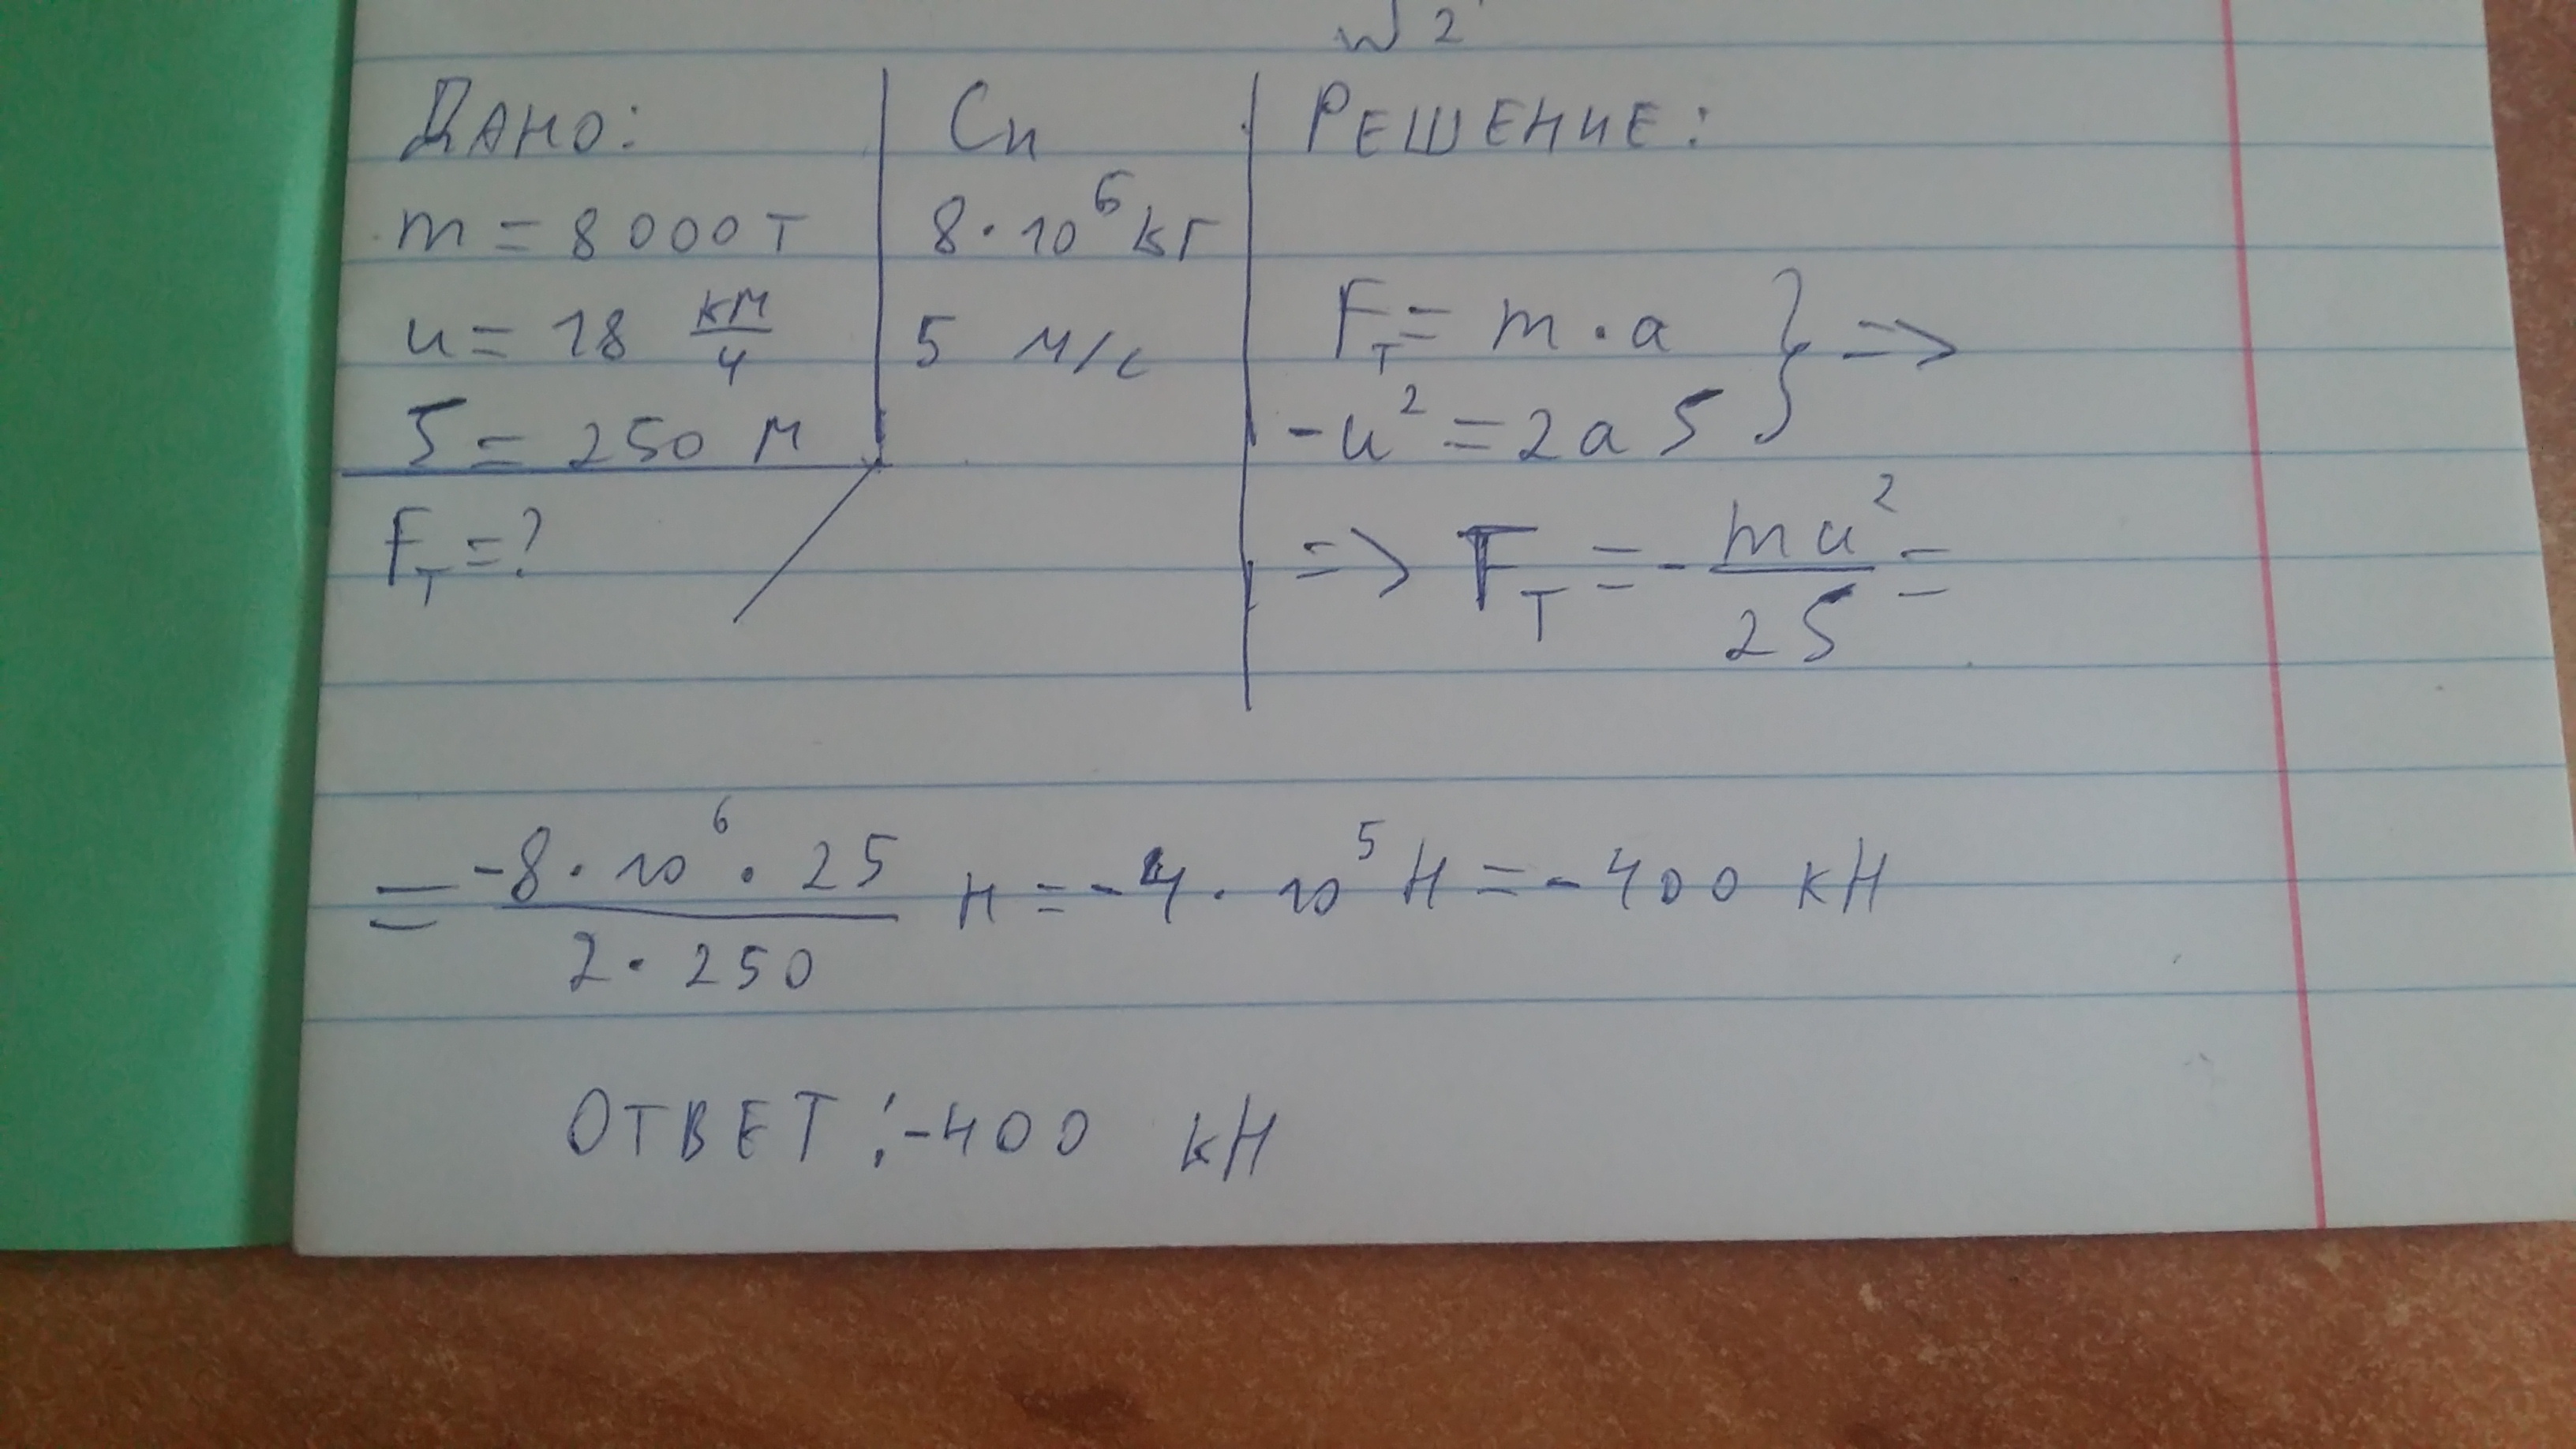 №2
Дано:
m = 8000 т
u = 18 км/ч
S = 250 м
Fт = ?
Си
8·10⁶ кг
5 м/с
Решение:
Fт = m·a } =>
-u² = 2aS
=> Fт = - mu²/2S =
= -8·10⁶·25/2·250 Н = -4·10⁵ Н = -400 кН
Ответ: -400 кН